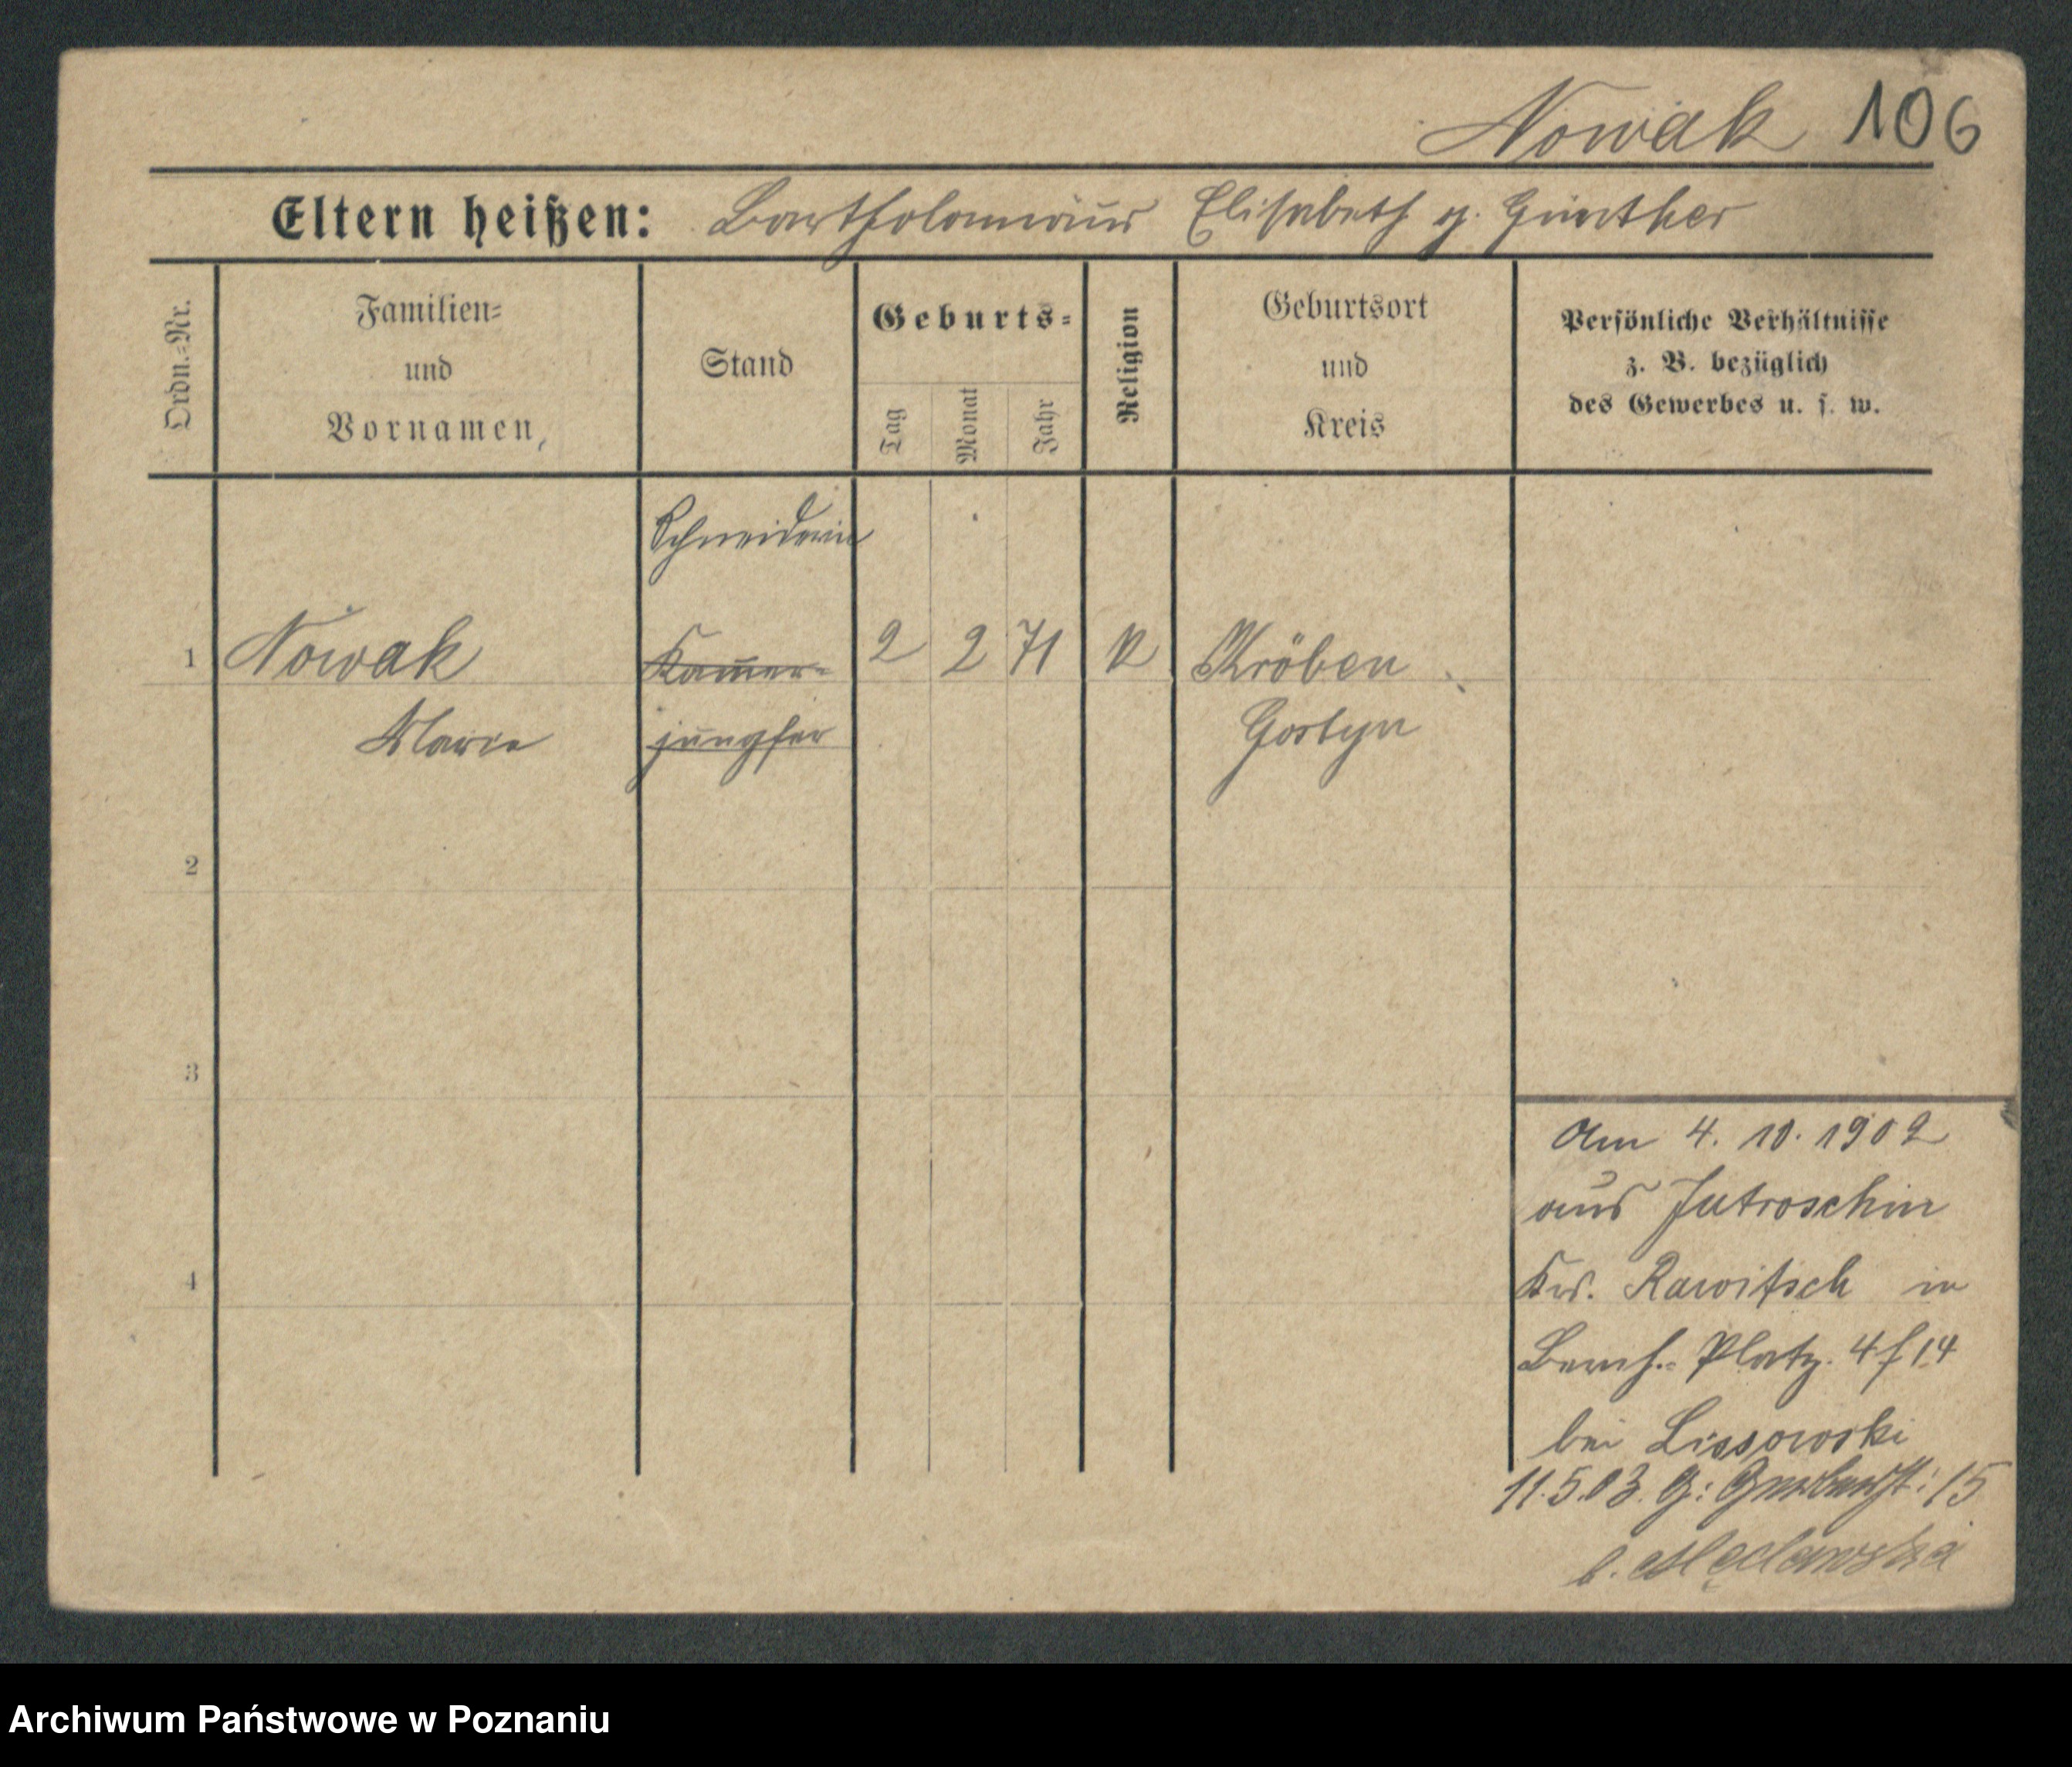 Nowak 106
Eltern heißen: Bartholomäus Elisabeth g. Günther
Ordn.-Nr.
Familien-
und
Vornamen,
Stand
Geburts-
Tag
Monat
Jahr
Religion
Geburtsort
und
Kreis
Persönliche Verhältnisse
z. B. bezüglich
des Gewerbes u. s. w.
Schneiderin
1 Nowak Kam̄er- 2 2 71 K Kröben
Marie jungfer Gostyn
2
3
4
Am 4. 10. 1902
aus Jutroschin
Krs. Rawitsch in
Bernh.- Platz. 4 f 14
bei Lissowski
11.5.03. G: : 15
b.
Archiwum Państwowe w Poznaniu